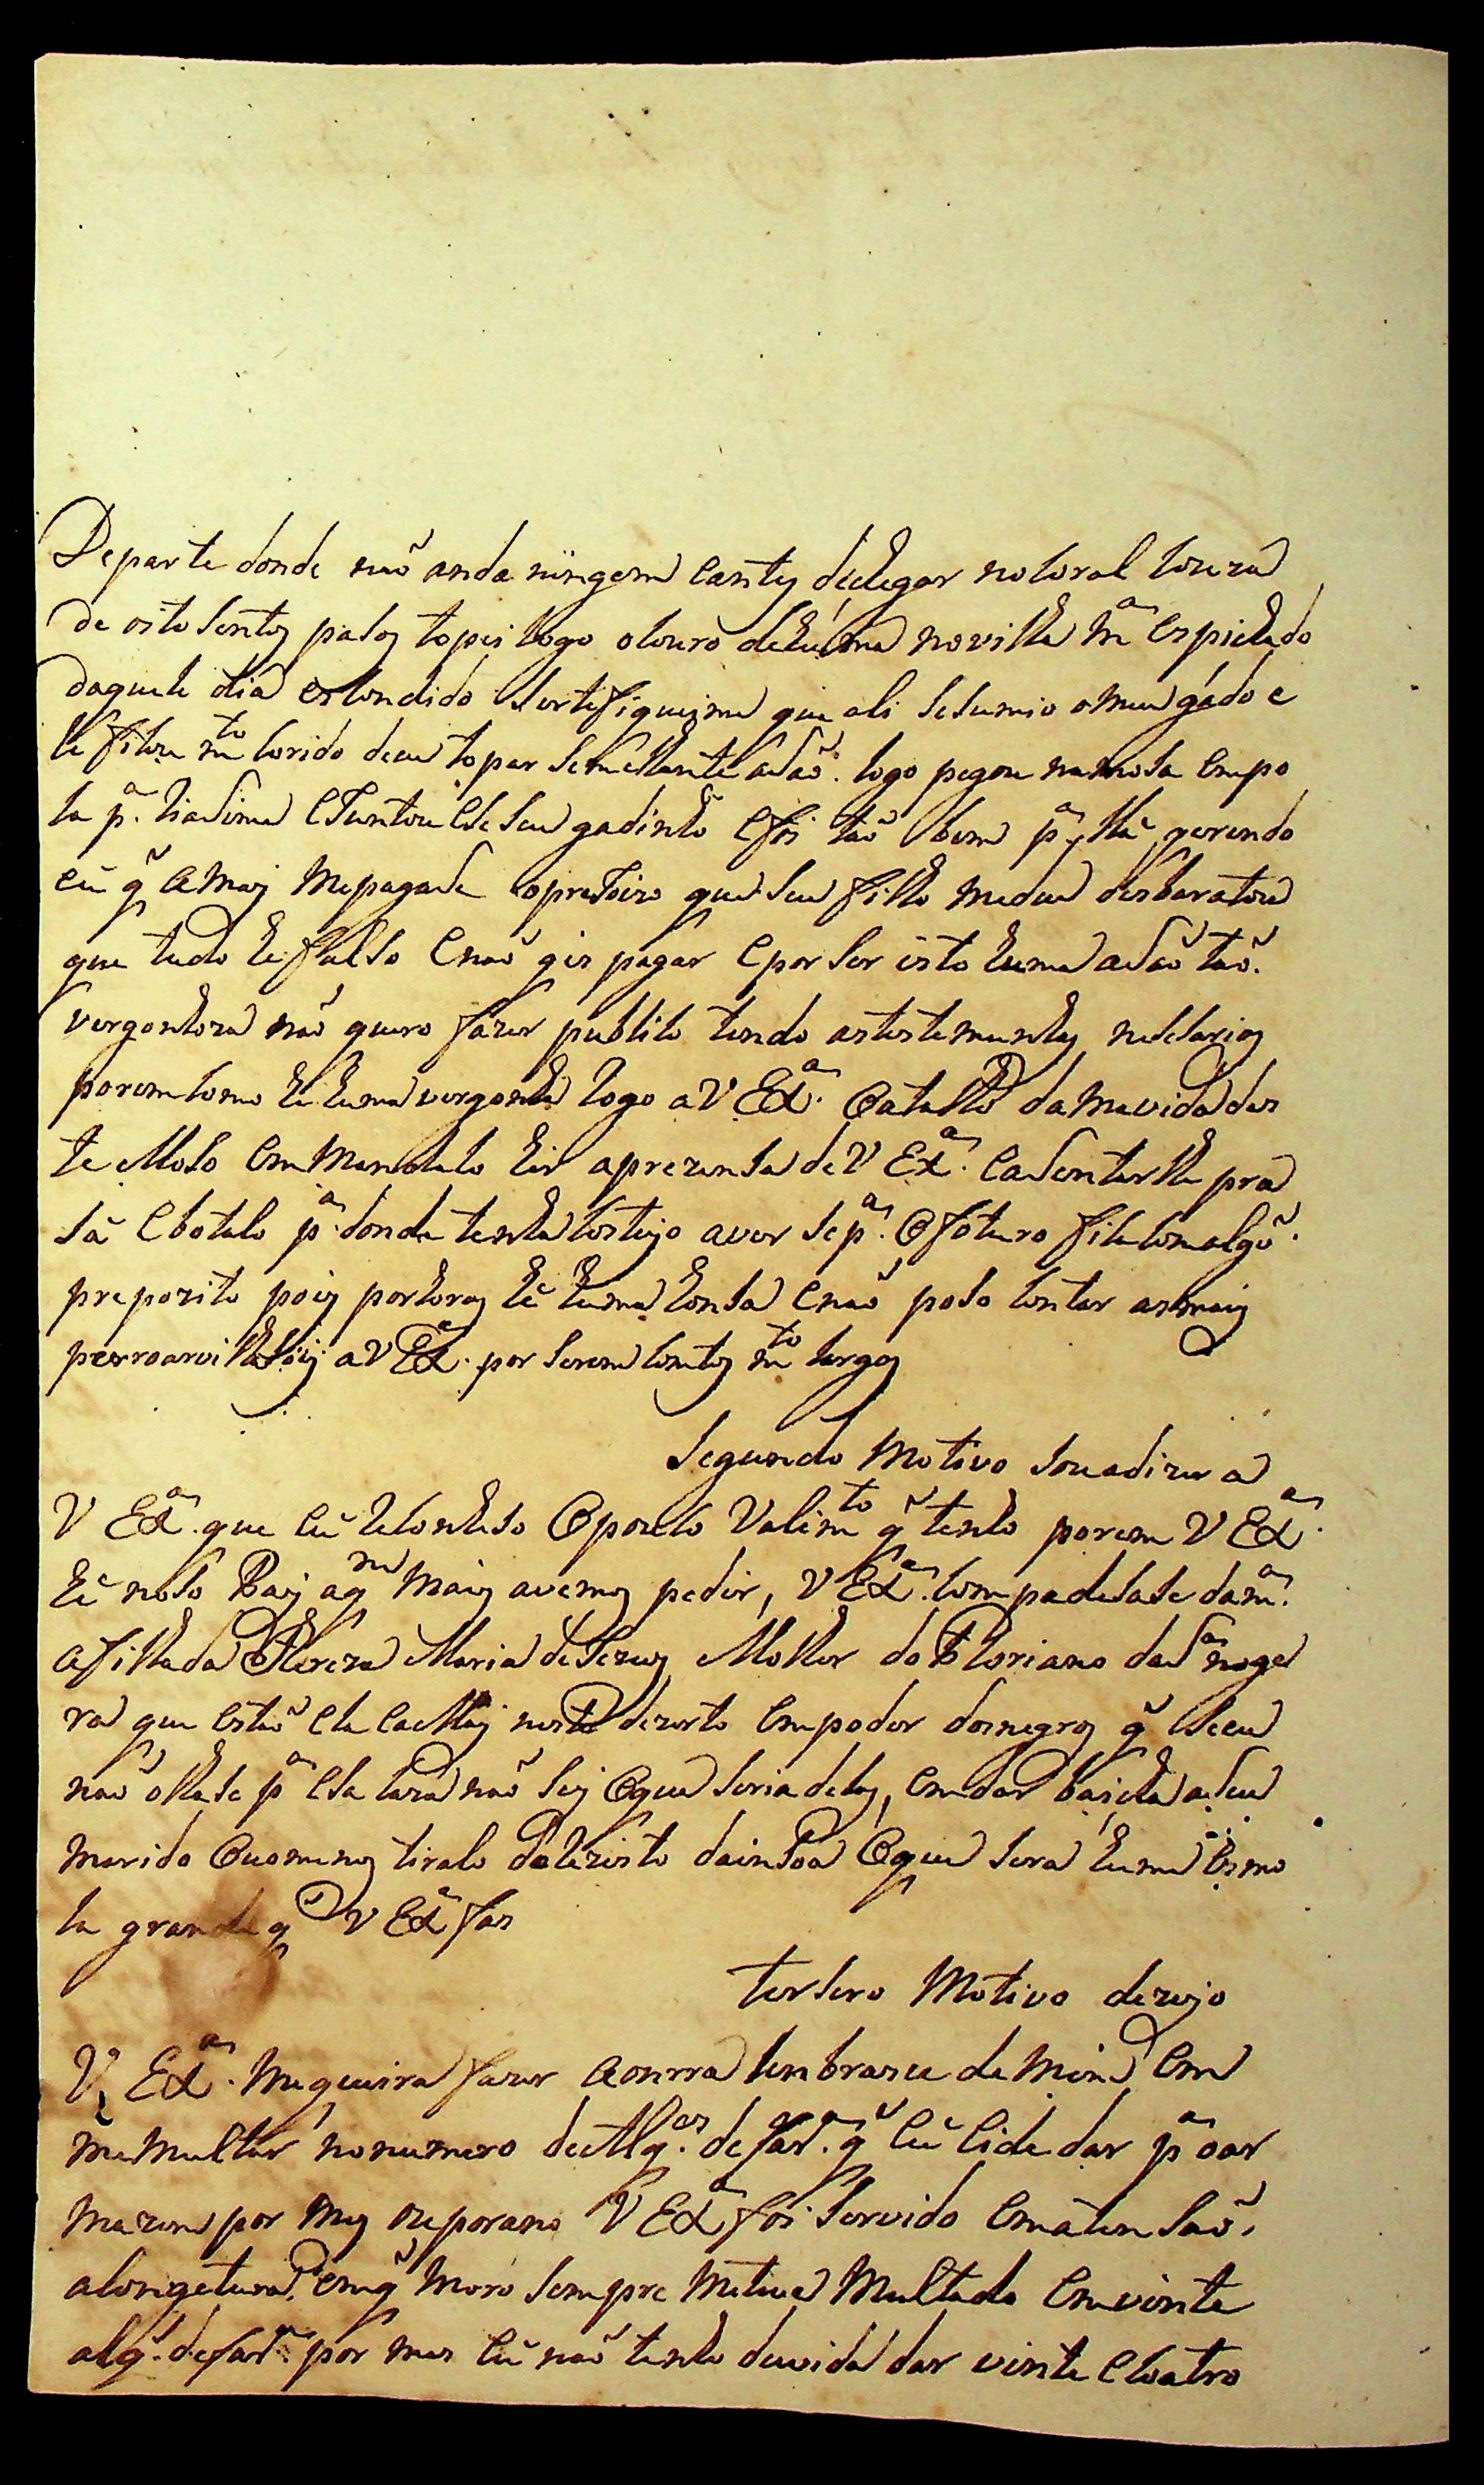 Departe donde naõ anda ningem eantes dechegar nocoral couza
de oito sentos pasos topei logo o couro dehuma novilha mª espichado
daquele dia escondido sertefiqueime que ali sesumio omeu gado e
le ficou mto corido deeu topar semelhante asaõ. logo pegou na mosa empo
la pª. siasima ejuntou ese seu gadinho efoi taõ bem pª. lha qerendo
eu q̃ a mai mepagase oprejuizo que seu filho medeu desbaratou
que tudo he falso enaõ qis pagar epor ser isto huma asaõ taõ.
vergonhoza naõ quero fazer publico tendo astestemunhas nesesarias
porem como he huma vergonha rogo a V Exª. o atalho da mavida des
te Moso em Mandalo hir aprezensa de V Exª. easentarlhe pra
sa ebotalo pª. donde tenha costejo aver se pª. o foturo fica com algũ.
prepozito pois por horas he huma consa enaõ poso contar as mais
perroarvilhasois a V Exª. por serem contos mto largos
Segundo Motivo sou adizer a
V Exª. que eu reconheso o pouco Valimto q̃ tenho porem V Exª.
he noso Pai aqm mais avemos pedir, V Exª. compadesase damª.
afilhada Thereza Maria de Jezus Molher do Floriano da Sª noge
ra que estaõ ela eaMai neste dezerto empoder dosnegros q̃ seeu
naõ olhase pª esa caza naõ sei oque seria delas, emdar baicha aseu
marido ouomenos tiralo dolezisto dainsoa oque sera huma esmo
la grande q̃ V Exª fas
tersero Motivo dezejo
V. Exª. Mequeira fazer aonrra lenbrarce de Mim em
meMultar nonumero deAlqes. defarª. q̃ eu eide dar pª oar
mazem por mes oreporano V Exª foi servido ematensaõ.
alongetura. emq̃ Moro sempre Meteve Multado emvinte
alqs. defarª. por mes eu naõ tenho duvida dar vinte coatro